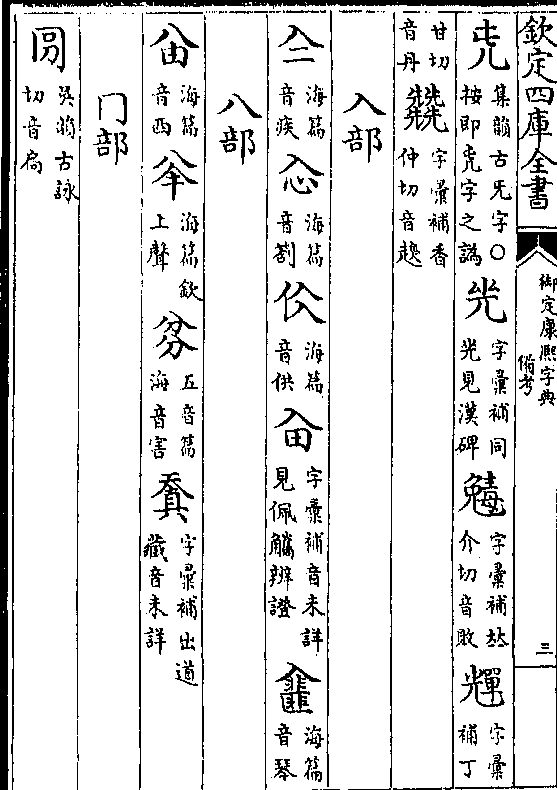 欽定四庫全書
御定康熙字典
備考
三
集韻古旡字〇
按即虎字之譌
字彙補同
光見漢碑
字彙補
介切音敗
字彙
補丁
甘切
音丹
字彙補香
仲切音趨
入部
海篇
音疾
海篇
音劄
海篇
音供
字彙補音未詳
見佩觿辨證
海篇
音琴
八部
海篇
音西
海篇欽
上聲
五音篇
海音害
字彙補出道
藏音未詳
冂部
吳韻古詠
切音扃